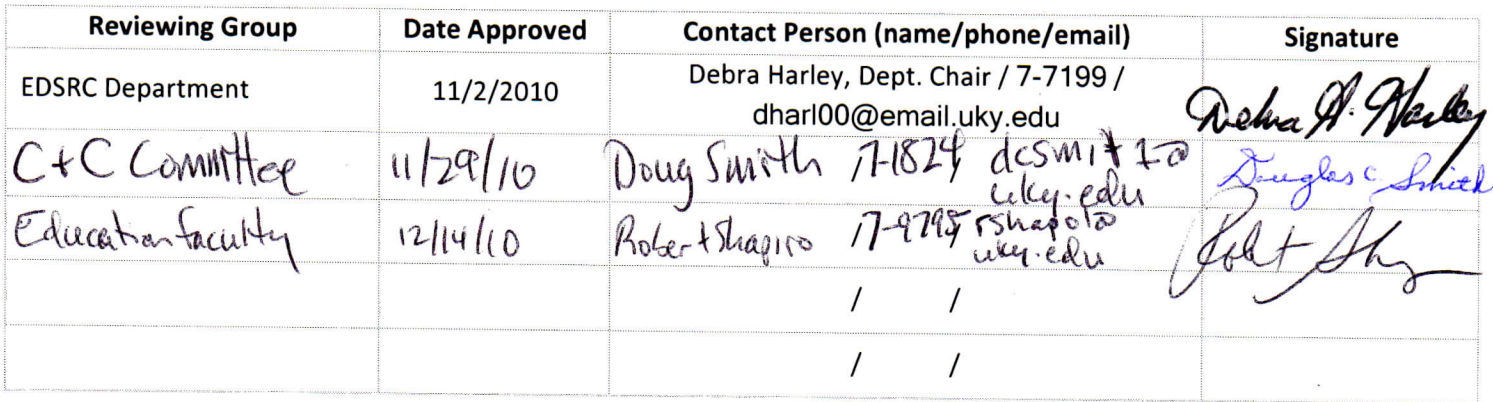 Reviewing Group Date Approved Contact Person (name/phone/email) Signature
EDSRC Department 11/2/2010 Debra Harley, Dept. Chair / 7-7199 /
dharl00@email.uky.edu Debra A. Harley
C+C Committee 11/29/10 Doug Smith /7-1824/ dcsmit1@
uky.edu Douglas C Smith
Education faculty 12/14/10 Robert Shapiro /7-9795/ rshap01@
uky.edu
/ /
/ /